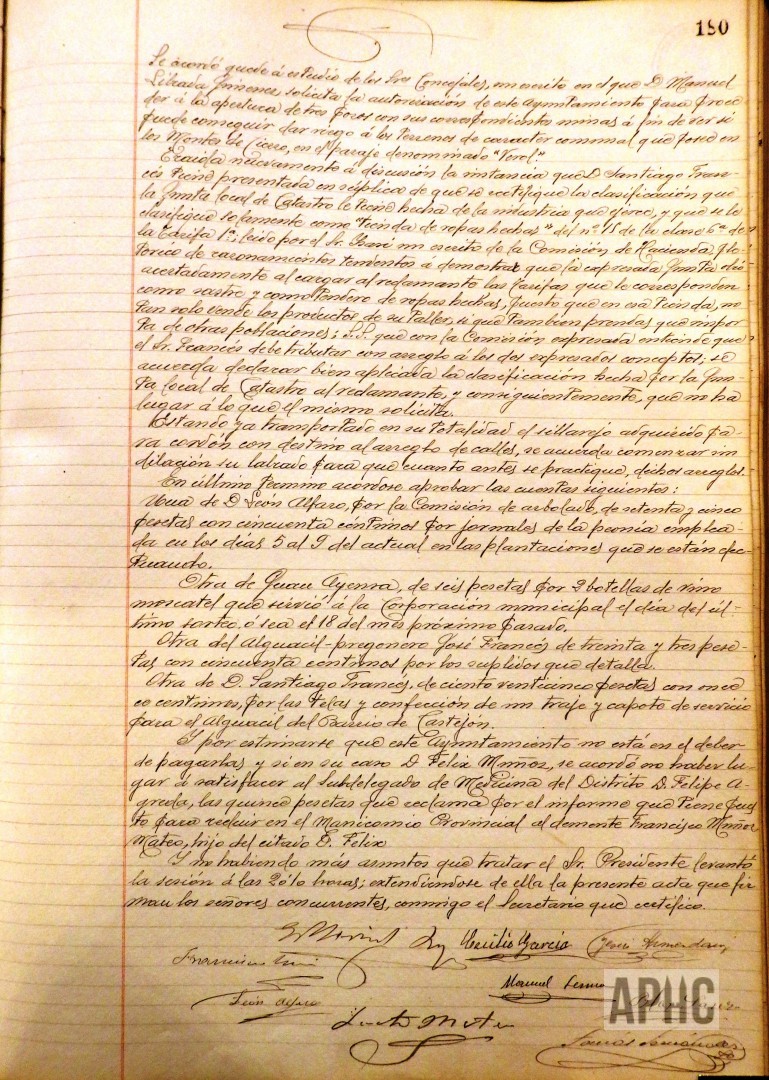 180
Se acordó quede á estudio de los Sres Concejales, un escrito en el que D. Manuel
Librada Jimenez solicita la autorización de este Ayuntamiento para proce-
der á la apertura de tres pozos con sus correspondientes minas á fin de ver si
puede conseguir dar riego á los terrenos de caracter comunal que posee en
los Montes de Cierzo, en el paraje denominado "Verol".
Traida nuevamente á discusión la instancia que D. Santiago Fran-
cés tiene presentada en súplica de que se rectifique la clasificación que
la Junta local de Catastro le tiene hecha de la industria que ejerce, y que se le
clasifique solamente como "tienda de ropas hechas" del nº 6 de la clase 6ª de
la Tarifa 1ª; leido por el Sr. un escrito de la Comisión de Hacienda ple-
tórico de razonamientos tendentes á demostrar que la expresada Junta obró
acertadamente al cargar al reclamante las tarifas que le corresponden
como sastre y como tendero de ropas hechas, puesto que en esa tienda, no
tan solo vende los productos de su taller, si que tambien prendas que impor-
ta de otras poblaciones; S.S. que con la Comisión expresada entiende que
el Sr. Francés debe tributar con arreglo á los dos expresados conceptos; se
acuerda declarar bien aplicada la clasificación hecha por la Jun-
ta local de Catastro al reclamante, y consiguientemente, que no ha
lugar á lo que el mismo solicita.
Estando ya transportado en su totalidad el sillarejo adquirido pa-
ra cordón con destino al arreglo de calles, se acuerda comenzar sin
dilación su labrado para que cuanto antes se practique, dichos arreglos.
En último termino acordose aprobar las cuentas siguientes:
Una de D. León Alfaro, por la Comisión de arbolado, de setenta y cinco
pesetas con cincuenta céntimos por jornales de la peonía emplea-
da en los días 5 al 9 del actual en las plantaciones que se están efec-
tuando.
Otra de Juan Ayensa, de seis pesetas por 2 botellas de vino
moscatel que sirvió á la Corporación municipal el día del úl-
timo sorteo, ó sea el 18 del mes próximo pasado.
Otra del Alguacil-pregonero José Francés de treinta y tres pese-
tas con cincuenta centimos por los suplidos que detalla.
Otra de D. Santiago Francés, de ciento venticinco pesetas con once
centimos, por las telas y confección de un traje y capote de servicio
para el Alguacil del Barrio de Castejón.
Y por estimarse que este Ayuntamiento no está en el deber
de pagarlas y si en su caso D. Felix Muñoz, se acordó no haber lu-
gar á satisfacer al Subdelegado de Medicina del Distrito D. Felipe A-
greda, las quince pesetas que reclama por el informe que tiene pues-
to para recluir en el Manicomio Provincial al demente Francisco Muñoz
Mateo, hijo del citado D. Felix
Y no habiendo más asuntos que tratar el Sr. Presidente levantó
la sesión á las 20'10 horas; extendiendose de ella la presente acta que fir-
man los señores concurrentes, conmigo el Secretario que certifico.
Cecilio Garcia
Francisco
Manuel
León Alfaro
APHC